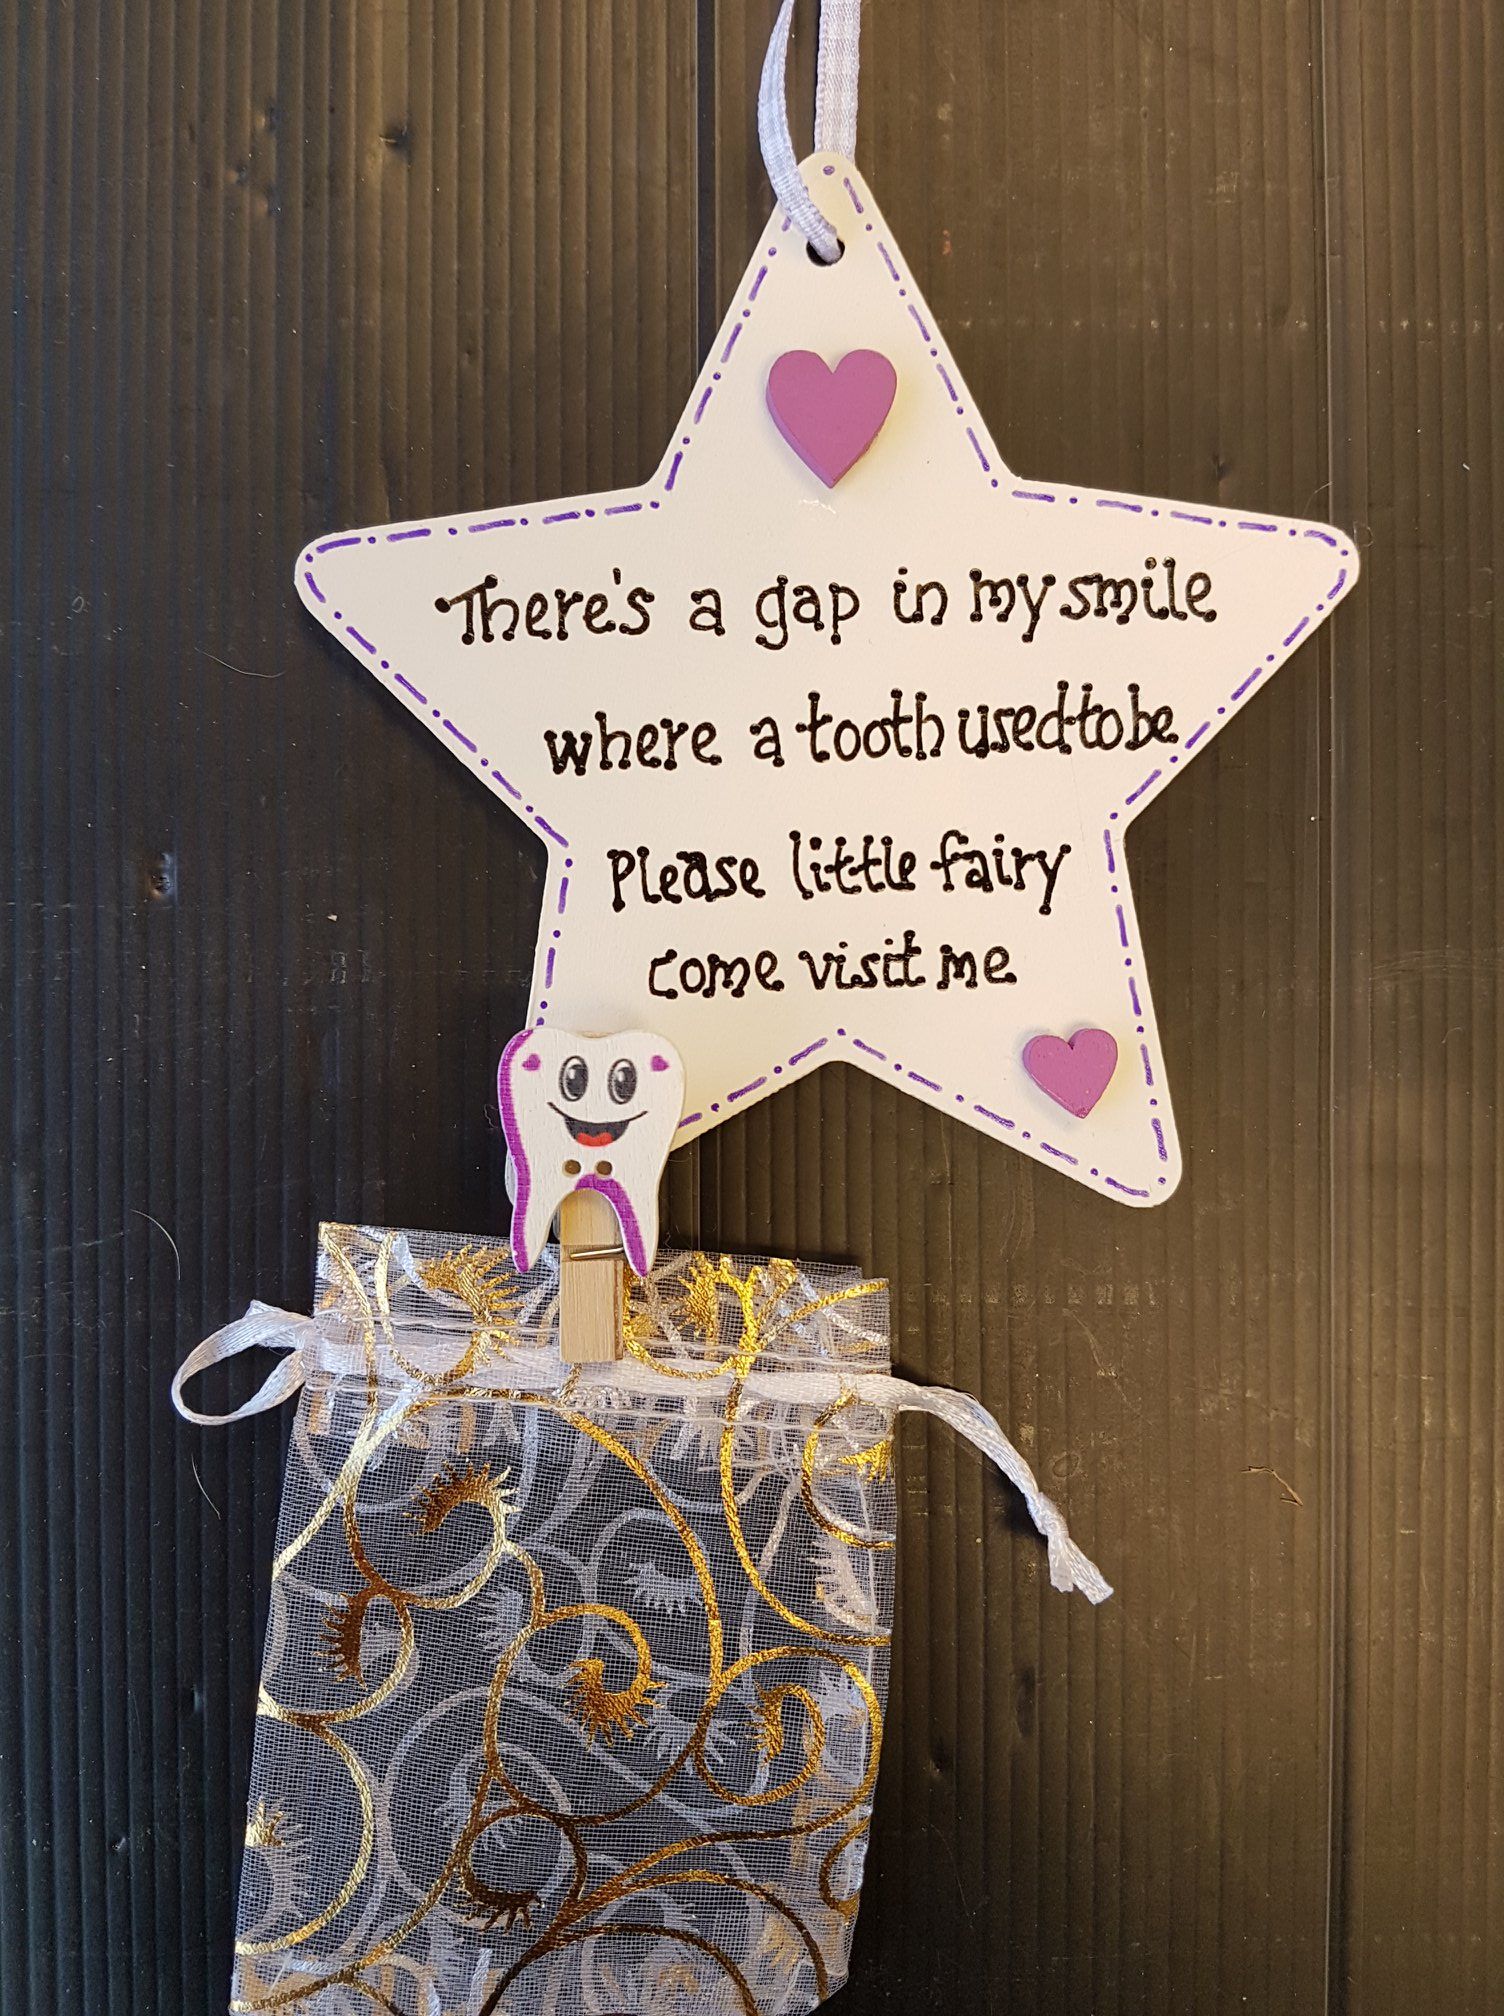 There's a gap in my smile
where a tooth used to be
Please little fairy
come visit me